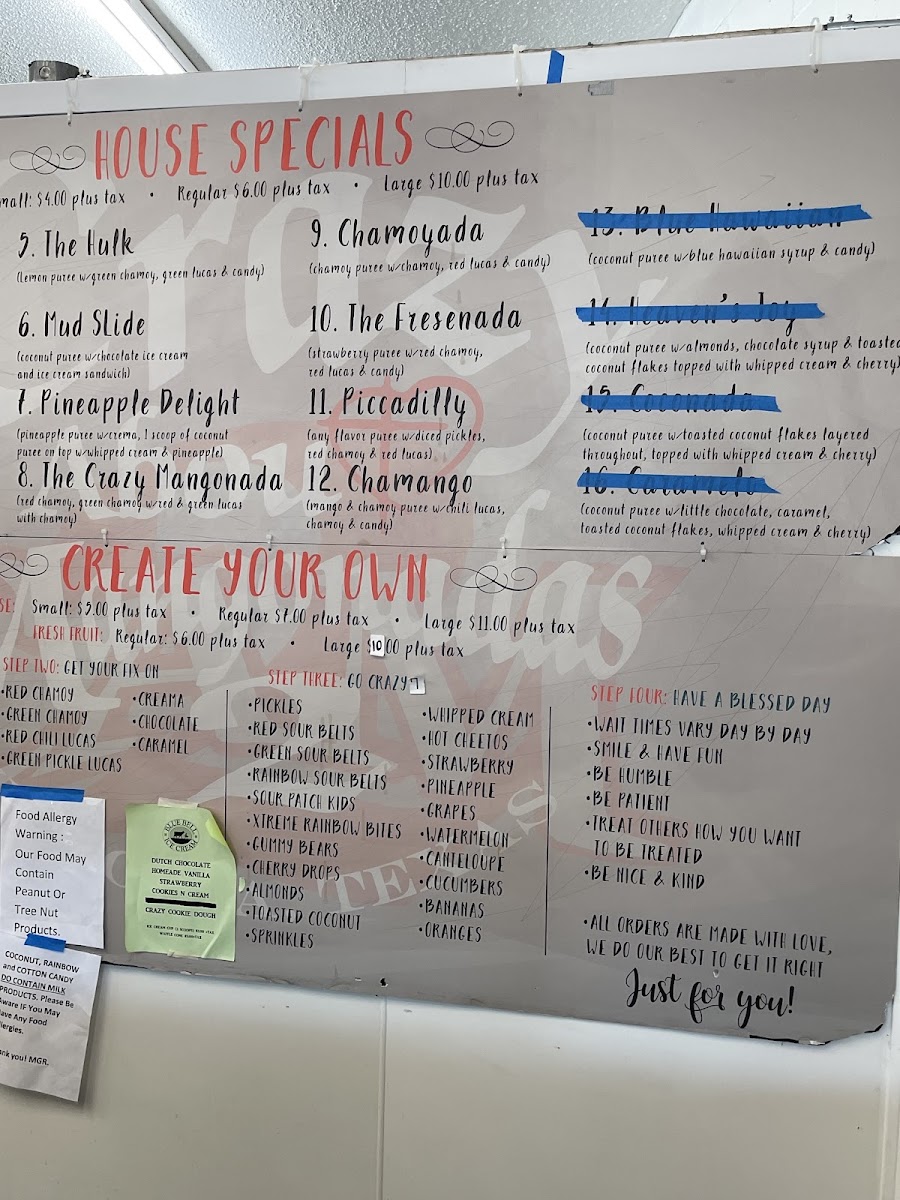 HOUSE SPECIALS
mall: $4.00 plus tax • Regular $6.00 plus tax • Large $10.00 plus tax
5. The Hulk
(lemon puree w/green chamoy, green lucas & candy)
6. Mud Slide
(coconut puree w/chocolate ice cream
and ice cream sandwich)
7. Pineapple Delight
(pineapple puree w/crema, 1 scoop of coconut
puree on top w/whipped cream & pineapple)
8. The Crazy Mangonada
(red chamoy, green chamoy w/red & green lucas
with chamoy)
9. Chamoyada
(chamoy puree w/chamoy, red lucas & candy)
10. The Fresenada
(strawberry puree w/red chamoy,
red lucas & candy)
11. Piccadilly
(any flavor puree w/diced pickles,
red chamoy & red lucas)
12. Chamango
(mango & chamoy puree w/chili lucas,
chamoy & candy)
13. Blue Hawaiian
(coconut puree w/blue hawaiian syrup & candy)
14. Heaven's Joy
(coconut puree w/almonds, chocolate syrup & toasted
coconut flakes topped with whipped cream & cherry)
15. Coconada
(coconut puree w/toasted coconut flakes layered
throughout, topped with whipped cream & cherry)
16. Caramelo
(coconut puree w/little chocolate, caramel,
toasted coconut flakes, whipped cream & cherry)
Crazy
Mangonadas
TEXAS
CREATE YOUR OWN
SE: Small: $5.00 plus tax • Regular $7.00 plus tax • Large $11.00 plus tax
FRESH FRUIT: Regular: $6.00 plus tax • Large $10.00 plus tax
STEP TWO: GET YOUR FIX ON
•RED CHAMOY
•GREEN CHAMOY
•RED CHILI LUCAS
•GREEN PICKLE LUCAS
•CREAMA
•CHOCOLATE
•CARAMEL
STEP THREE: GO CRAZY
•PICKLES
•RED SOUR BELTS
•GREEN SOUR BELTS
•RAINBOW SOUR BELTS
•SOUR PATCH KIDS
•XTREME RAINBOW BITES
•GUMMY BEARS
•CHERRY DROPS
•ALMONDS
•TOASTED COCONUT
•SPRINKLES
•WHIPPED CREAM
•HOT CHEETOS
•STRAWBERRY
•PINEAPPLE
•GRAPES
•WATERMELON
•CANTELOUPE
•CUCUMBERS
•BANANAS
•ORANGES
STEP FOUR: HAVE A BLESSED DAY
•WAIT TIMES VARY DAY BY DAY
•SMILE & HAVE FUN
•BE HUMBLE
•BE PATIENT
•TREAT OTHERS HOW YOU WANT
TO BE TREATED
•BE NICE & KIND
•ALL ORDERS ARE MADE WITH LOVE,
WE DO OUR BEST TO GET IT RIGHT
Just for you!
Food Allergy
Warning :
Our Food May
Contain
Peanut Or
Tree Nut
Products.
COCONUT, RAINBOW
and COTTON CANDY
DO CONTAIN MILK
PRODUCTS. Please Be
Aware IF You May
Have Any Food
llergies.
ank you! MGR.
BLUE BELL
ICE CREAM
DUTCH CHOCOLATE
HOMEADE VANILLA
STRAWBERRY
COOKIES N CREAM
CRAZY COOKIE DOUGH